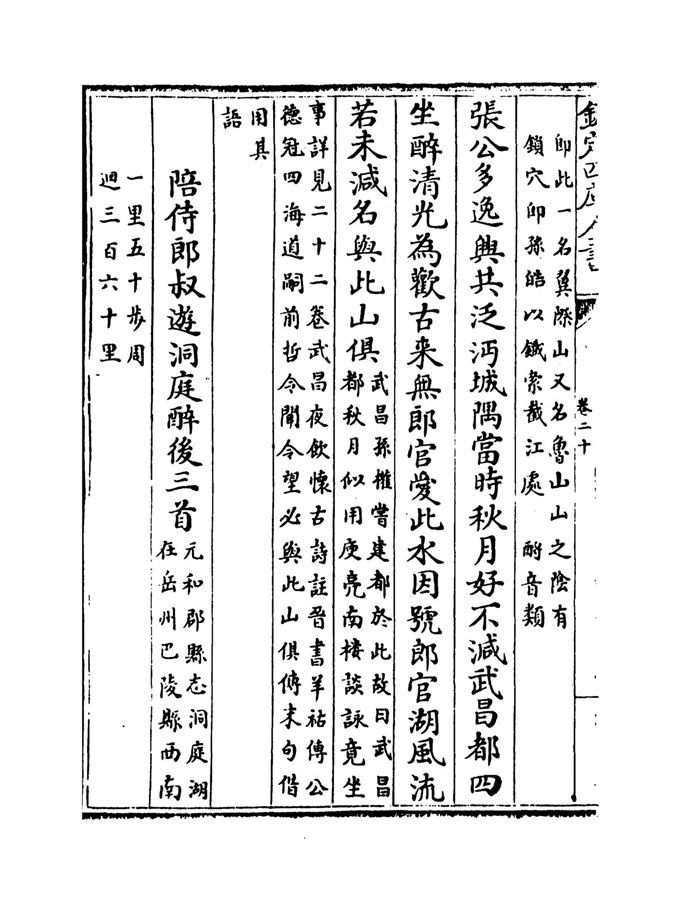 欽定四庫全書
卷二十
即此一名翼際山又名魯山山之陰有
鎖穴即孫皓以鐵索截江處　酹音類
張公多逸興共泛沔城隅當時秋月好不減武昌都四
坐醉清光為歡古來無郎官愛此水因號郎官湖風流
若未減名與此山俱武昌孫權嘗建都於此故曰武昌
都秋月似用庾亮南樓談詠竟坐
事詳見二十二卷武昌夜飲懷古詩註晉書羊祜傳公
德冠四海道嗣前哲令聞令望必與此山俱傳末句偕
用其
語
陪侍郎叔遊洞庭醉後三首元和郡縣志洞庭湖
在岳州巴陵縣西南
一里五十步周
迴三百六十里